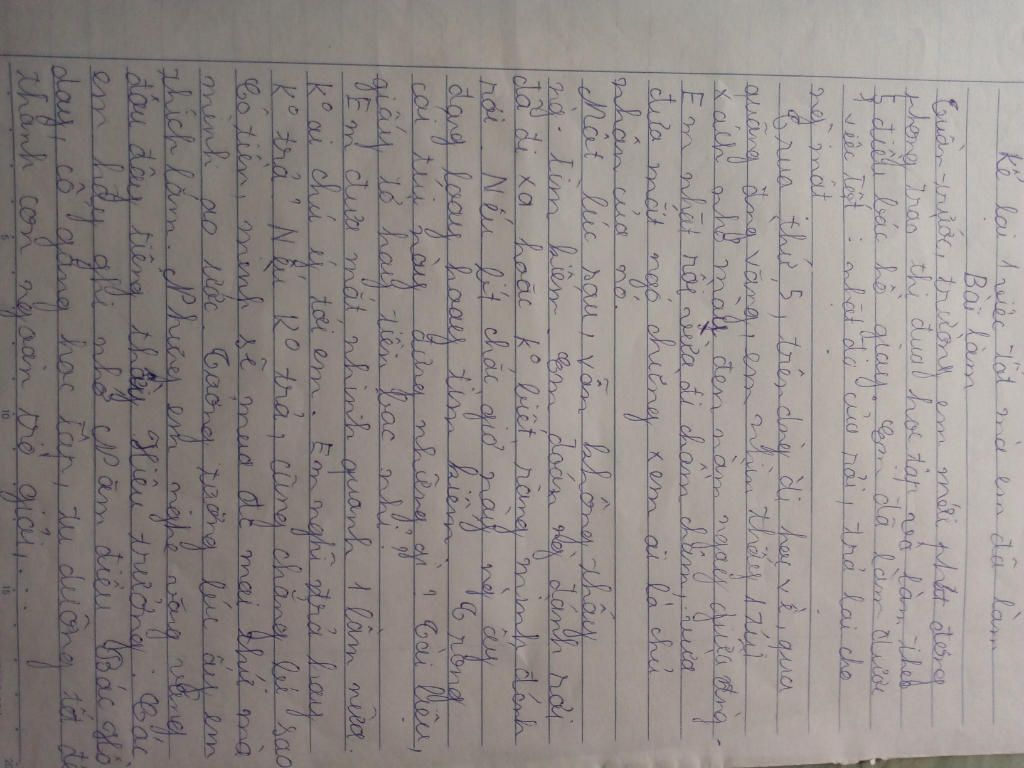 Kể lại 1 việc tốt mà em đã làm
Bài làm
Tuần trước, trường em mới phát động
phong trào thi đua học tập và làm theo
5 điều bác hồ dạy. Em đã làm được
1 việc tốt: nhặt đc của rơi, trả lại cho
ng` mất
Trưa thứ 5, trên đường đi học về, qua
quãng đng vắng, em nhìn thấy 1 túi
xách nhỏ màu đen nằm ngay giữa đng.
Em nhặt rồi vừa đi chầm chậm, vừa
đưa mắt ngó chừng xem ai là chủ
nhân của nó.
Một lúc sau, vẫn không thấy
ng` tìm kiếm. Em đoán ng` đánh rơi
đã đi xa hoặc ko biết rằng mình đánh
rơi. Nếu bít chắc giờ này ng` ấy
đang loay hoay tìm kiếm. Trong
cái túi này đựng những gì? Tài liệu,
giấy tờ hay tiền bạc nhỉ?
Em đưa mắt nhình quanh 1 lần nữa.
Ko ai chú ý tới em. Em nghĩ trả hay
ko trả? Nếu ko trả, cũng chẳng bít sao
Có tiền, mình sẽ mua đc mọi thứ mà
mình ao ước. Tưởng tượng lúc ấy em
thích lắm. Nhưng em nghe vẳng vẳng
đâu đây tiếng thầy Hiệu trưởng: Các
em hãy ghi nhớ Năm điều Bác Hồ
dạy, cố gắng học tập, tu dưỡng tốt để
thành con ngoan trò giỏi,...